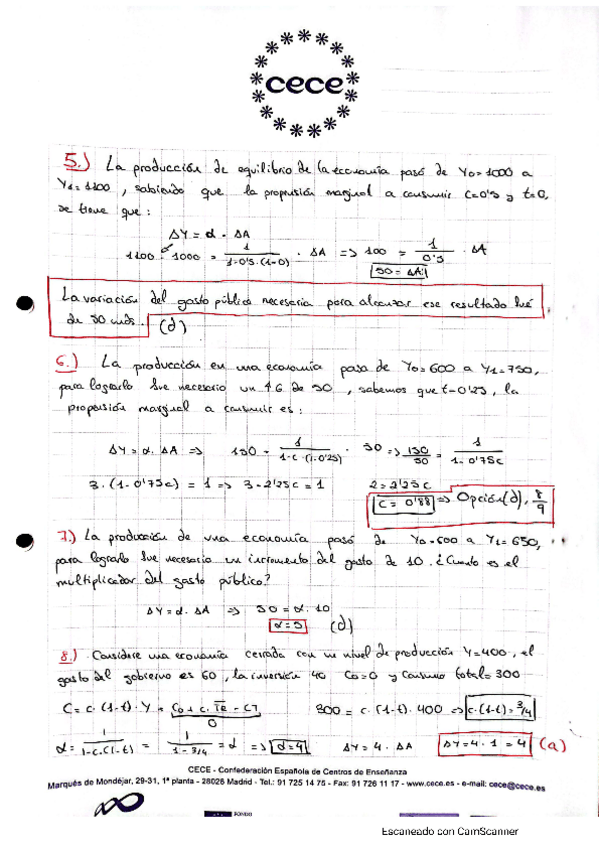 cece
5.) La producción de equilibrio de la economía pasó de Y0=1000 a
Y1=1100, sabiendo que la propensión marginal a consumir C=0'5 y t=0,
se tiene que:
ΔY = α · ΔA
1100 - 1000 = 1/(1-0'5·(1-0)) · ΔA => 100 = 1/0'5 · ΔA
50 = ΔA
La variación del gasto público necesaria para alcanzar ese resultado fué
de 50 uds. (d)
6.) La producción en una economía pasa de Y0=600 a Y1=750,
para lograrlo fue necesario un ↑G de 50, sabemos que t=0'25, la
propensión marginal a consumir es:
ΔY = α. ΔA => 150 = 1/(1-c·(1-0'25)) · 50 => 150/50 = 1/(1-0'75c)
3·(1-0'75c) = 1 => 3-2'25c = 1 2 = 2'25c
C = 0'88 => Opción (d), 8/9
7.) La producción de una economía pasó de Y0=600 a Y1=650,
para lograrlo fue necesario un incremento del gasto de 10. ¿Cuanto es el
multiplicador del gasto público?
ΔY = α. ΔA => 50 = α. 10
α=5 (d)
8.) Considere una economía cerrada con un nivel de producción Y=400, el
gasto del gobierno es 60, la inversión 40 C0=0 y consumo total=300
C = c. (1-t) · Y + C0 + c. TR - CT 300 = c. (1-t). 400 => c.(1-t) = 3/4
0
α = 1/(1-c.(1-t)) = 1/(1-3/4) = α => α=4 ΔY = 4 · ΔA ΔY=4·1=4 (a)
CECE - Confederación Española de Centros de Enseñanza
Marqués de Mondéjar, 29-31, 1ª planta - 28028 Madrid - Tel.: 91 725 14 75 - Fax: 91 726 11 17 - www.cece.es - e-mail: cece@cece.es
FONDO
Escaneado con CamScanner